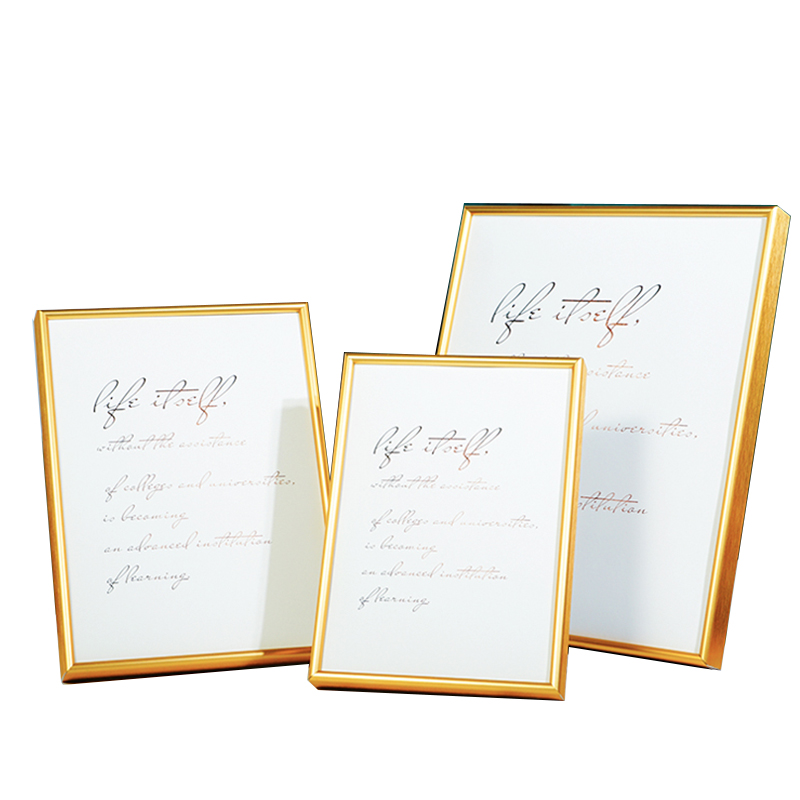 life itself,
without the assistance
of colleges and universities,
is becoming
an advanced institution
of learning,
life itself,
without the assistance
of colleges and universities,
is becoming
an advanced institution
of learning,
life itself,
assistance
universities,
institution